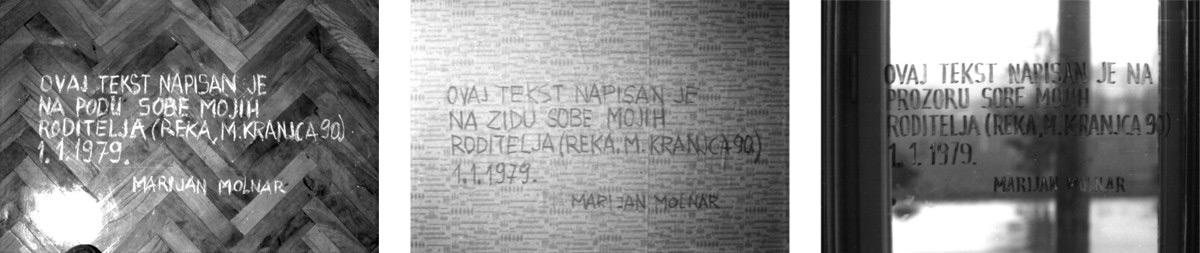 OVAJ TEKST NAPISAN JE
NA PODU SOBE MOJIH
RODITELJA (REKA, M. KRANJCA 9a).
1.1.1979.
MARIJAN MOLNAR
OVAJ TEKST NAPISAN JE
NA ZIDU SOBE MOJIH
RODITELJA (REKA, M. KRANJCA 9a)
1.1.1979.
MARIJAN MOLNAR
OVAJ TEKST NAPISAN JE NA
PROZORU SOBE MOJIH
RODITELJA (REKA, M. KRANJCA 9a)
1.1.1979.
MARIJAN MOLNAR